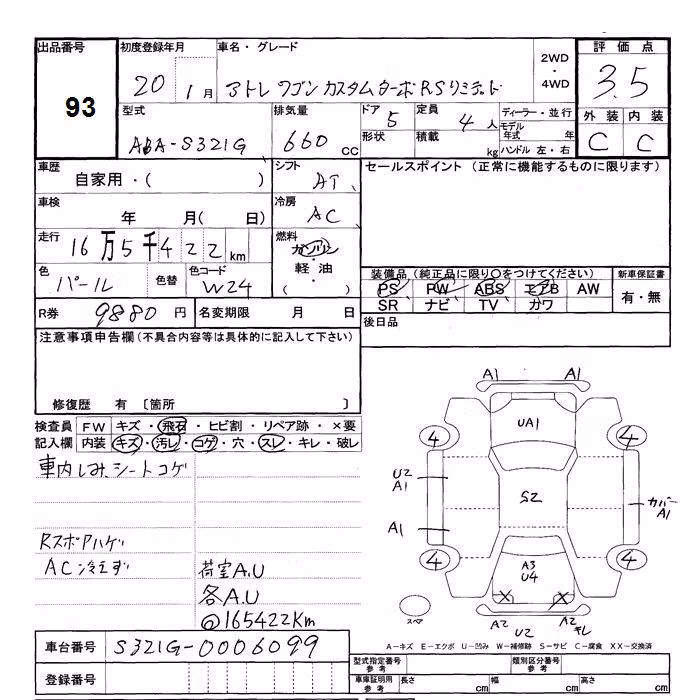 出品番号 初度登録年月 車名・グレード 2WD・4WD 評価点
93 20 1月 アトレーワゴン カスタムターボRSリミテッド 3.5
型式 排気量 ドア 定員 ディーラー・並行 外装 内装
ABA-S321G 660 cc 5 4人 モデル年式 年 C C
形状 積載 kg ハンドル 左・右
車歴 シフト セールスポイント (正常に機能するものに限ります)
自家用・( ) AT
車検 冷房
年 月( 日) AC
走行 燃料
16万5千422 km ガソリン・軽油・( )
色 色替 色コード 装備品 (純正品に限り○をつけてください) 新車保証書
パール W24 PS PW ABS エアB AW 有・無
SR ナビ TV カワ
R券 9880 円 名変期限 月 日 後日品
注意事項申告欄(不具合内容等は具体的に記入して下さい)
修復歴 有 〔箇所 〕
検査員 FW キズ・飛石・ヒビ割・リペア跡・×要
記入欄 内装 キズ・汚レ・コゲ・穴・スレ・キレ・破レ
車内しみ、シートコゲ
Rスポアハゲ
AC冷えず 荷室A.U
各A.U
@165422Km
A1 A1
UA1
4 4
U2
A1
S2
カバー
A1
A1
4 4
A3
U4
X X
スペア
A2 U2 A2 キレ
A-キズ E-エクボ U-凹み W-補修跡 S-サビ C-腐食 XX-交換済
車台番号 S321G-0006099
型式指定番号 参考 類別区分番号 参考
登録番号 車庫証明用 参考 長さ cm 幅 cm 高さ cm